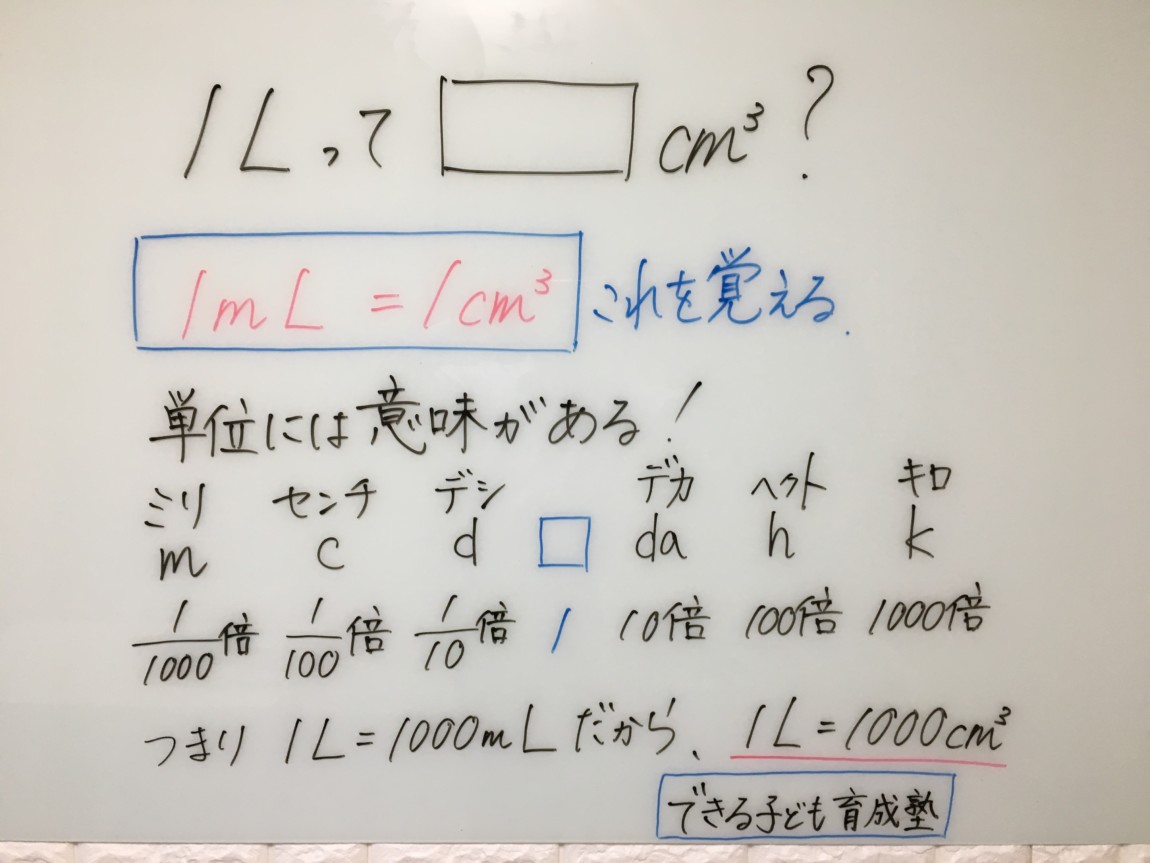 1L って □ cm³ ?
1mL = 1cm³ これを覚える.
単位には意味がある!
ミリ センチ デシ デカ ヘクト キロ
m c d □ da h k
1/1000倍 1/100倍 1/10倍 1 10倍 100倍 1000倍
つまり 1L = 1000mL だから、1L = 1000cm³
できる子ども育成塾